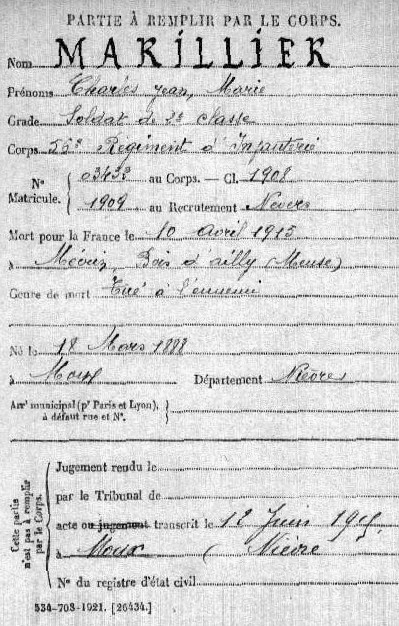 PARTIE À REMPLIR PAR LE CORPS.
Nom MARILLIER
Prénoms Charles Jean, Marie
Grade Soldat de 2e classe
Corps 56e Régiment d'Infanterie
N° Matricule. { 03433 au Corps. — Cl. 1908
1909 au Recrutement Nevers
Mort pour la France le 10 avril 1915
à Bois d'ailly (Meuse)
Genre de mort Tué à l'ennemi
Né le 18 Mars 1888
à Moux Département Nièvre
Arrt municipal (pr Paris et Lyon), à défaut rue et N°. }
Cette partie n'est pas à remplir par le Corps.
Jugement rendu le
par le Tribunal de
acte ou jugement transcrit le 12 Juin 1915
à Moux (Nièvre
N° du registre d'état civil
534-708-1921. [26434.]